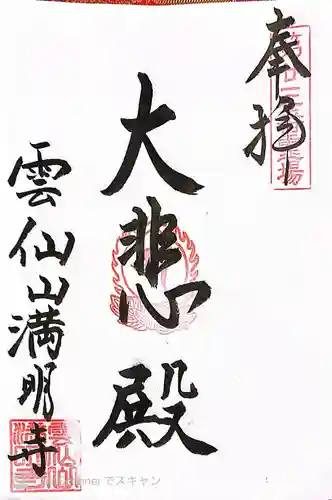 奉拝
大悲殿
雲仙山満明寺
でスキャン